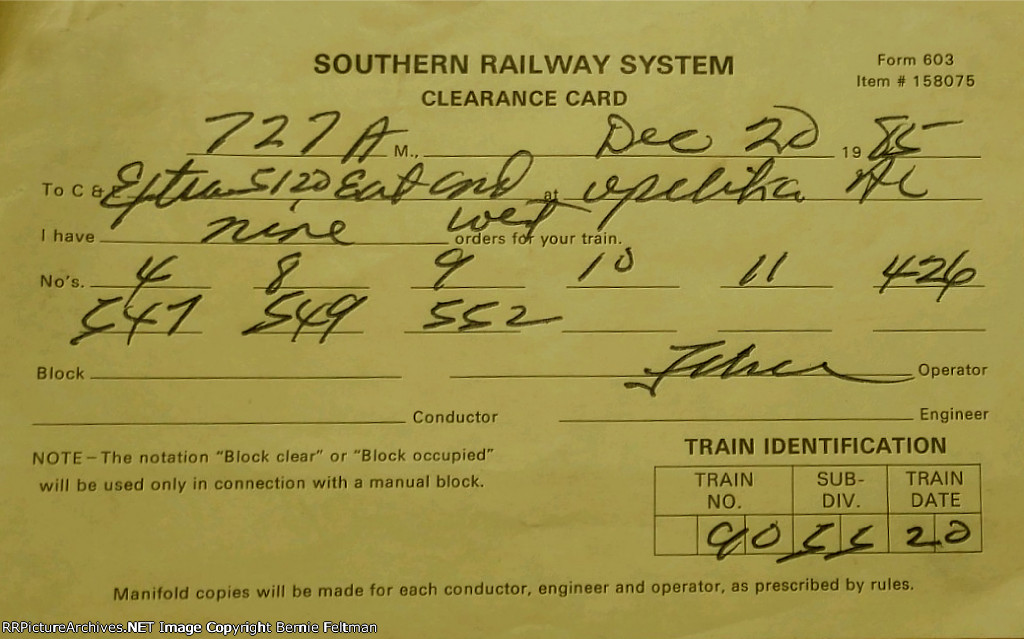 SOUTHERN RAILWAY SYSTEM
Form 603
Item # 158075
CLEARANCE CARD
727 A M., Dec 20 19 85
To C & E Extra 5120 East and at Opelika Al
west
I have nine orders for your train.
No's. 4 8 9 10 11 426
547 549 552
Block Operator
Conductor Engineer
NOTE – The notation "Block clear" or "Block occupied"
will be used only in connection with a manual block.
TRAIN IDENTIFICATION
TRAIN NO. SUB-DIV. TRAIN DATE
90 55 20
Manifold copies will be made for each conductor, engineer and operator, as prescribed by rules.
RRPictureArchives.NET Image Copyright Bernie Feltman